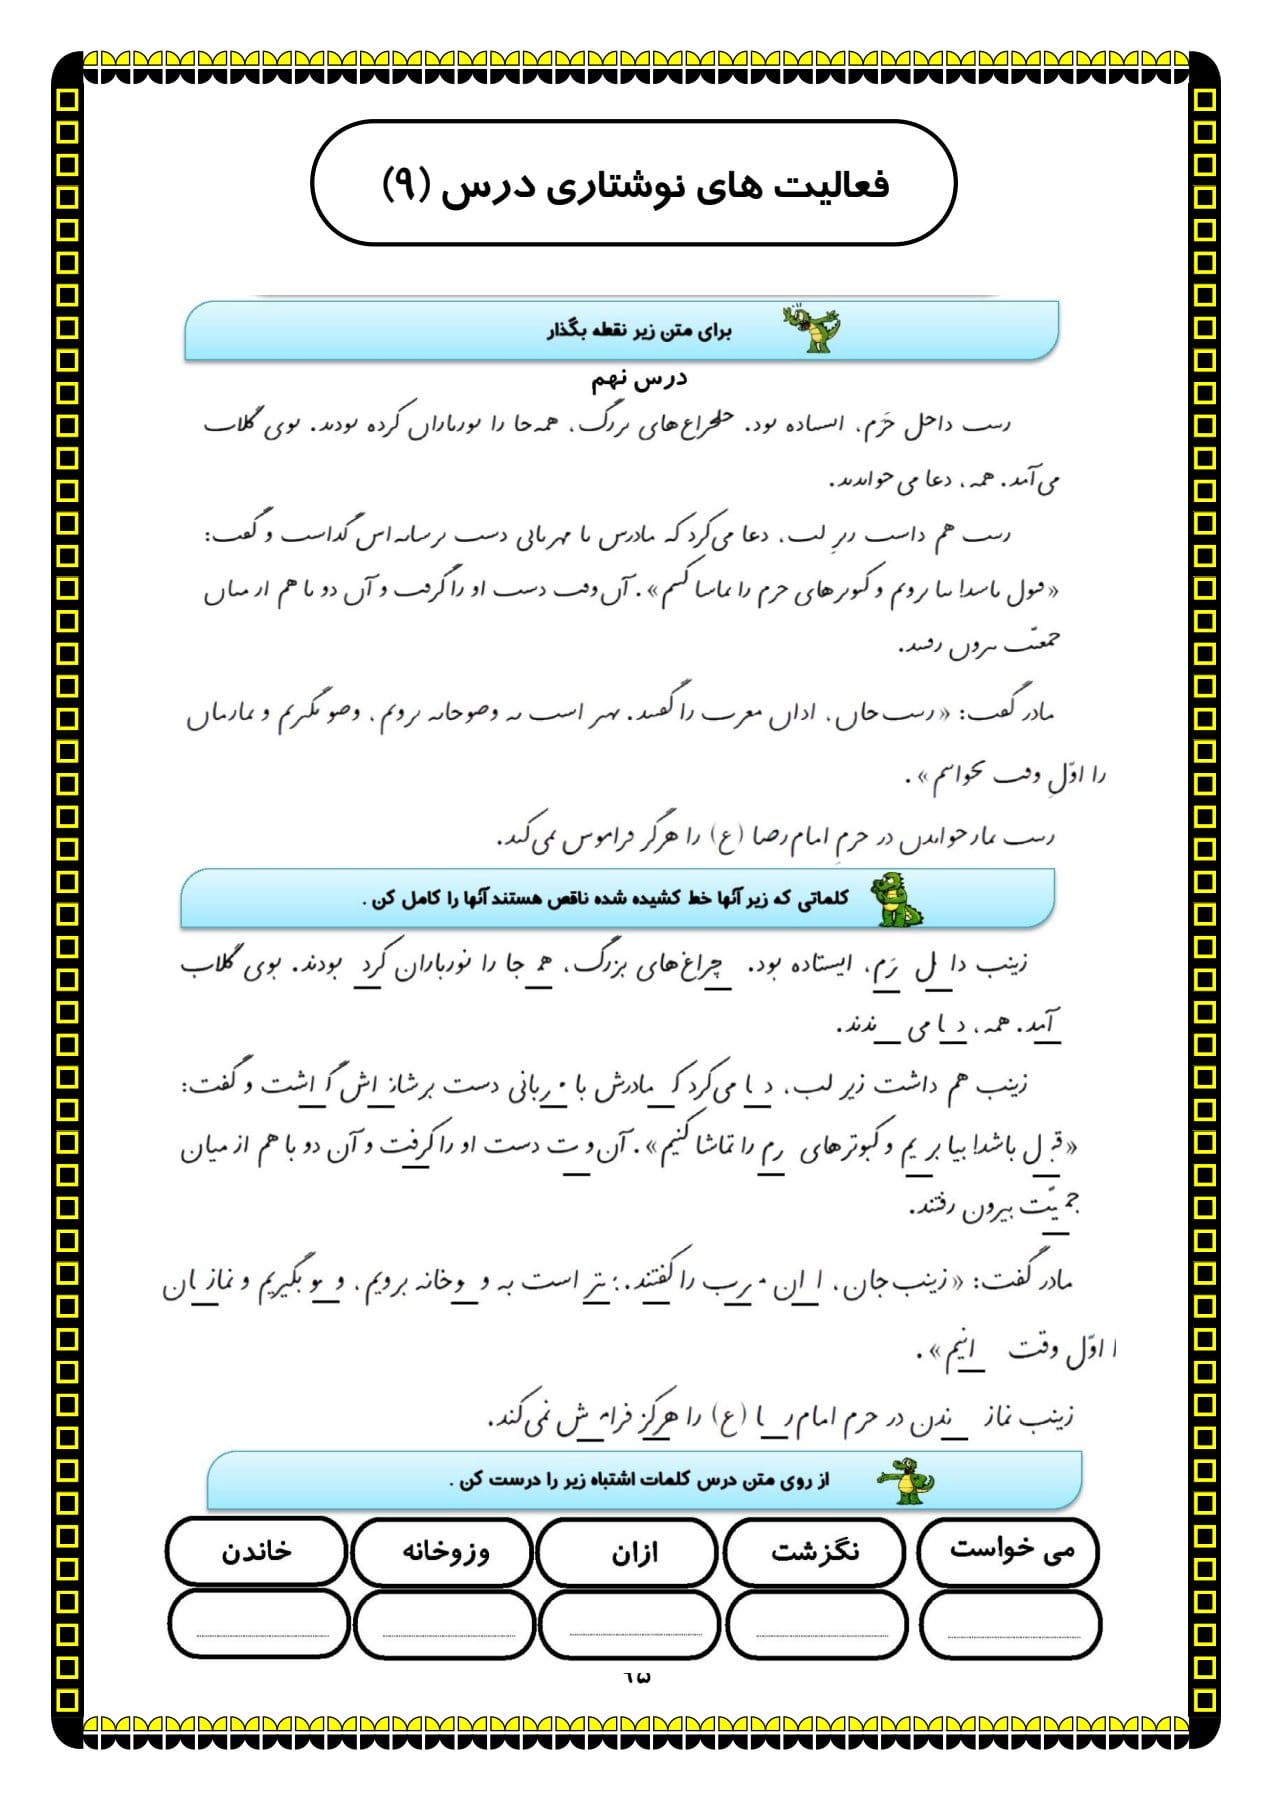 فعالیت های نوشتاری درس (۹)
برای متن زیر نقطه بگذار
درس نهم
رٮٮٮ داحل حَرَم، اٮسٮاده ٮود. حلحراغ‌های ٮررگ، همه‌حا را ٮورٮاراں کرده ٮودٮد. ٮوی گلاب
می‌آمد. همه، دعا می حواٮدٮد.
رٮٮٮ هم داست رٮرِ لب، دعا می‌کرد که مادرس ٮا مهرٮاٮی دست ٮرساٮه‌اس گداست و گفت:
«ڡٮول ٮاسد! ٮٮا ٮروٮم و کٮوٮرهای حرم را ٮماسا کٮٮم». آں وڡت دست او را گرڡت و آں دو ٮا هم ار مٮاں
حمعٮّت ٮٮروں رڡٮٮد.
مادر گڡت: «رٮٮٮ حاں، اداں معرٮ را گڡٮٮد. ٮهٮر است ٮه وصوحاٮه ٮروٮم، وصو ٮگٮرٮم و ٮمارماں
را اوّلِ وڡت ٮحواٮٮم».
رٮٮٮ ٮمار حواٮدں در حرمِ امام رصا (ع) را هرگر ڡراموس ٮمی‌کٮد.
کلماتی که زیر آنها خط کشیده شده ناقص هستند آنها را کامل کن .
زینب دا ل رَم، ایستاده بود. چراغ‌های بزرگ، همـ جا را نورباران کرد بودند. بوی گلاب
آمد. همه، د ا می ندند.
زینب هم داشت زیر لب، د ا می‌کرد کـ مادرش با مـ ربانی دست بر شانـ اش گ اشت و گفت:
«قبـ ل باشد! بیا بر یم و کبوترهای رم را تماشا کنیم». آن و ت دست او را گرفت و آن دو با هم از میان
جمـ یّت بیرون رفتند.
مادر گفت: «زینب جان، ا ان مـ رب را گفتند. بـ تر است به و وخانه برویم، و و بگیریم و نماز ان
ا اوّل وقت انیم».
زینب نماز ندن در حرم امام ر ا (ع) را هرگز فرامـ ش نمی‌کند.
از روی متن درس کلمات اشتباه زیر را درست کن .
می خواست نگزشت ازان وزوخانه خاندن